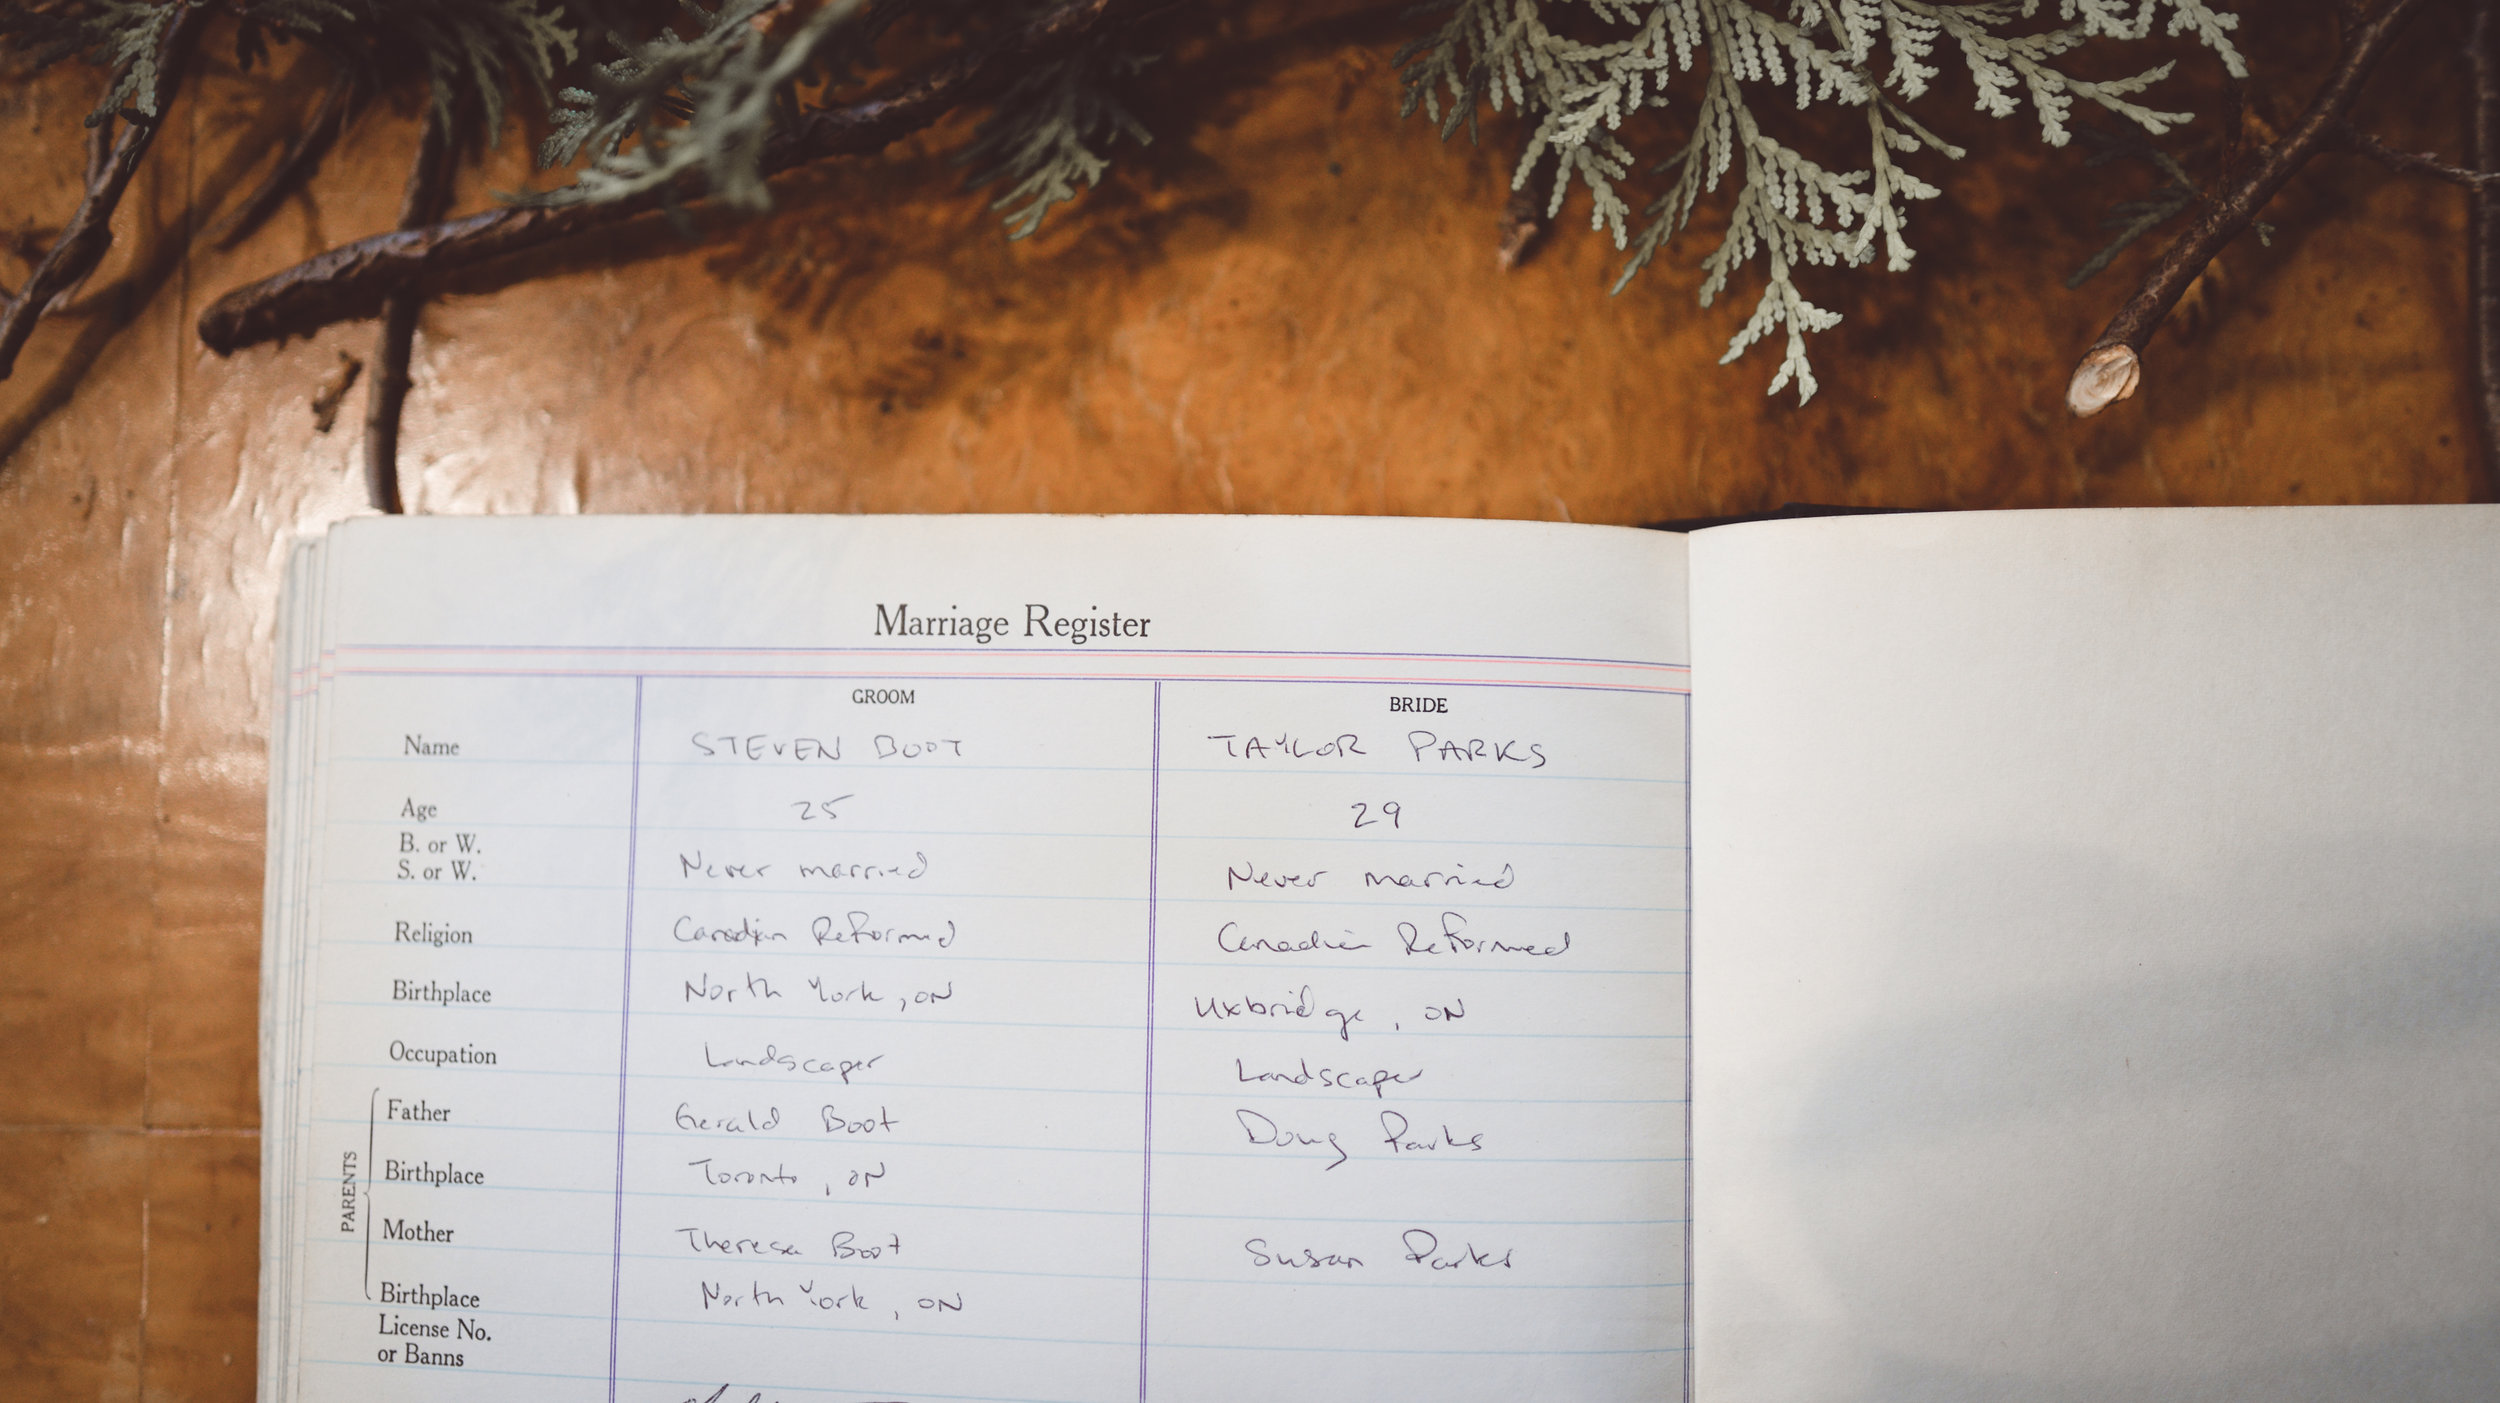 Marriage Register
GROOM BRIDE
Name STEVEN BOOT TAYLOR PARKS
Age 25 29
B. or W.
S. or W. Never married Never married
Religion Canadian Reformed Canadian Reformed
Birthplace North York, ON Uxbridge, ON
Occupation Landscaper Landscaper
PARENTS
Father Gerald Boot Doug Parks
Birthplace Toronto, ON
Mother Theresa Boot Susan Parks
Birthplace North York, ON
License No.
or Banns